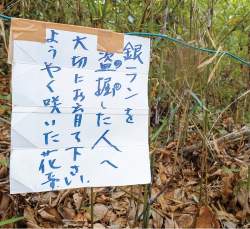 銀ランを
盗掘した人へ
大切にお育て下さい
ようやく咲いた花を